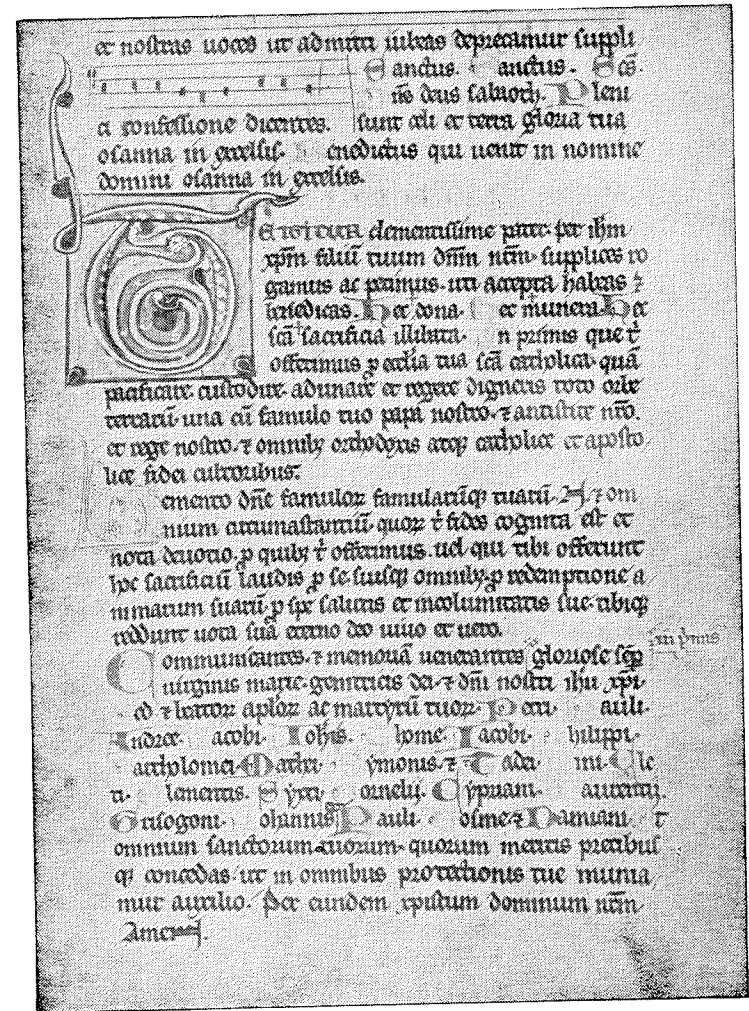 et nostras uoces ut admitti iubeas deprecamur suppli
Sanctus. anctus. Scs̄
n̄s deus sabaoth. Pleni
ci confessione dicentes. sunt celi et terra gloria tua
osanna in excelsis. enedictus qui uenit in nomine
domini osanna in excelsis.
TE IGITUR clementissime pater. per ih̄m
xp̄m filiū tuum dn̄m nr̄m. supplices ro
gamus ac petimus. uti accepta habeas ⁊
benedicas. Hec dona. ec munera. Hec
sc̄a sacrificia illibata. n primis que t̄
offerimus ꝑ ecc̄lia tua sc̄a catholica. quā
pacificare. custodire. adunare et regere digneris toto orbe
terrarū. una cū famulo tuo papa nostro. ⁊ antistite nr̄o.
et rege nostro. ⁊ omnibꝫ orthodoxis atqꝫ catholice et aposto
lice fidei cultoribus.
Memento dn̄e famuloꝝ famularūqꝫ tuarū. N. ⁊ om
nium circumastantiū. quoꝝ t̄ fides cognita est et
nota deuotio. ꝑ quibꝫ t̄ offerimus. uel qui tibi offerunt
hoc sacrificiū laudis ꝑ se. suisqꝫ omnibꝫ. ꝑ redemptione a
nimarum suarū. ꝑ spe salutis et incolumitatis sue. tibiqꝫ
reddunt uota sua eterno deo uiuo et uero.
Communicantes. ⁊ memoriā uenerantes gloriose semꝑ
in p̄mis
uirginis marie. genitricis dei. ⁊ dn̄i nostri ih̄u xp̄i.
ed ⁊ beatoꝝ apl̄oꝝ ac martyrū tuoꝝ. Petri. auli.
Andree. acobi. Ioh̄is. home. Iacobi. hilippi.
artholomei. Mathei. ymonis. ⁊ Tadei. ini. Cle
ti. lementis. Syxti. ornelij. Cypriani. aurentij.
Grisogoni. ohannis. Pauli. osme. ⁊ Damiani. ⁊
omnium sanctorum tuorum. quorum meritis precibus
qꝫ concedas. ut in omnibus protectionis tue munia
mur auxilio. Per eundem xpistum dominum nr̄m.
Amen.